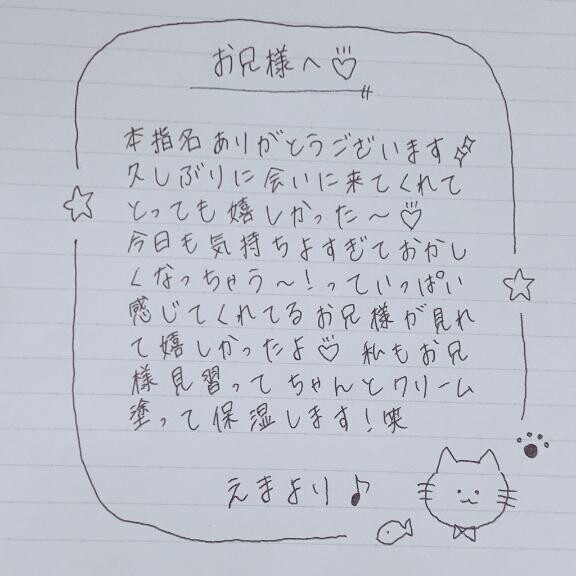 お兄様へ♡
本指名ありがとうございます
久しぶりに会いに来てくれて
とっても嬉しかった〜♡
今日も気持ちよすぎておかし
くなっちゃう〜!っていっぱい
感じてくれてるお兄様が見れ
て嬉しかったよ♡ 私もお兄
様見習ってちゃんとクリーム
塗って保湿します!笑
えまより♪